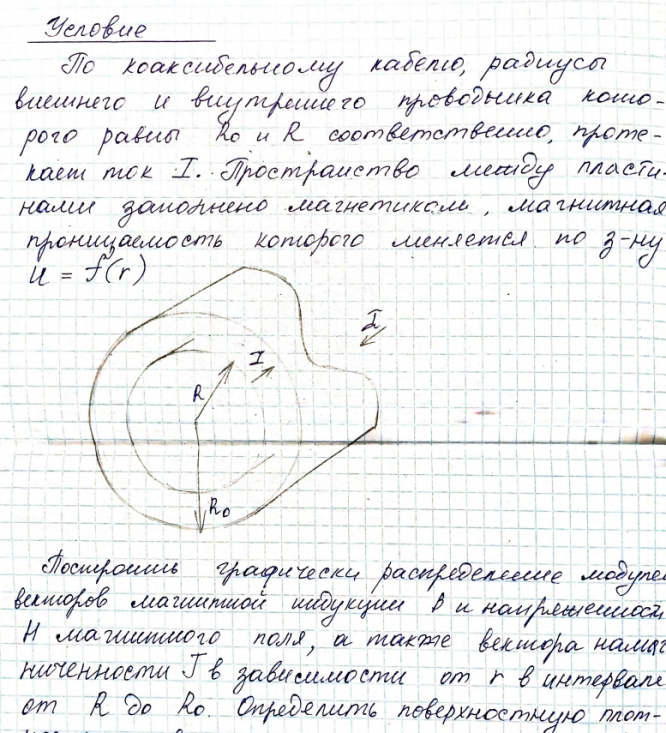 Условие
По коаксибельному кабелю, радиусы
внешнего и внутреннего проводника кото-
рого равны R₀ и R соответственно, проте-
кает ток I. Пространство между пласти-
нами заполнено магнетиком, магнитная
проницаемость которого меняется по з-ну
μ = f(r)
I
I
R
R₀
Построить графически распределение модулей
векторов магнитной индукции B и напряженност
H магнитного поля, а также вектора намаг
ниченности J в зависимости от r в интервале
от R до R₀. Определить поверхностную плот-